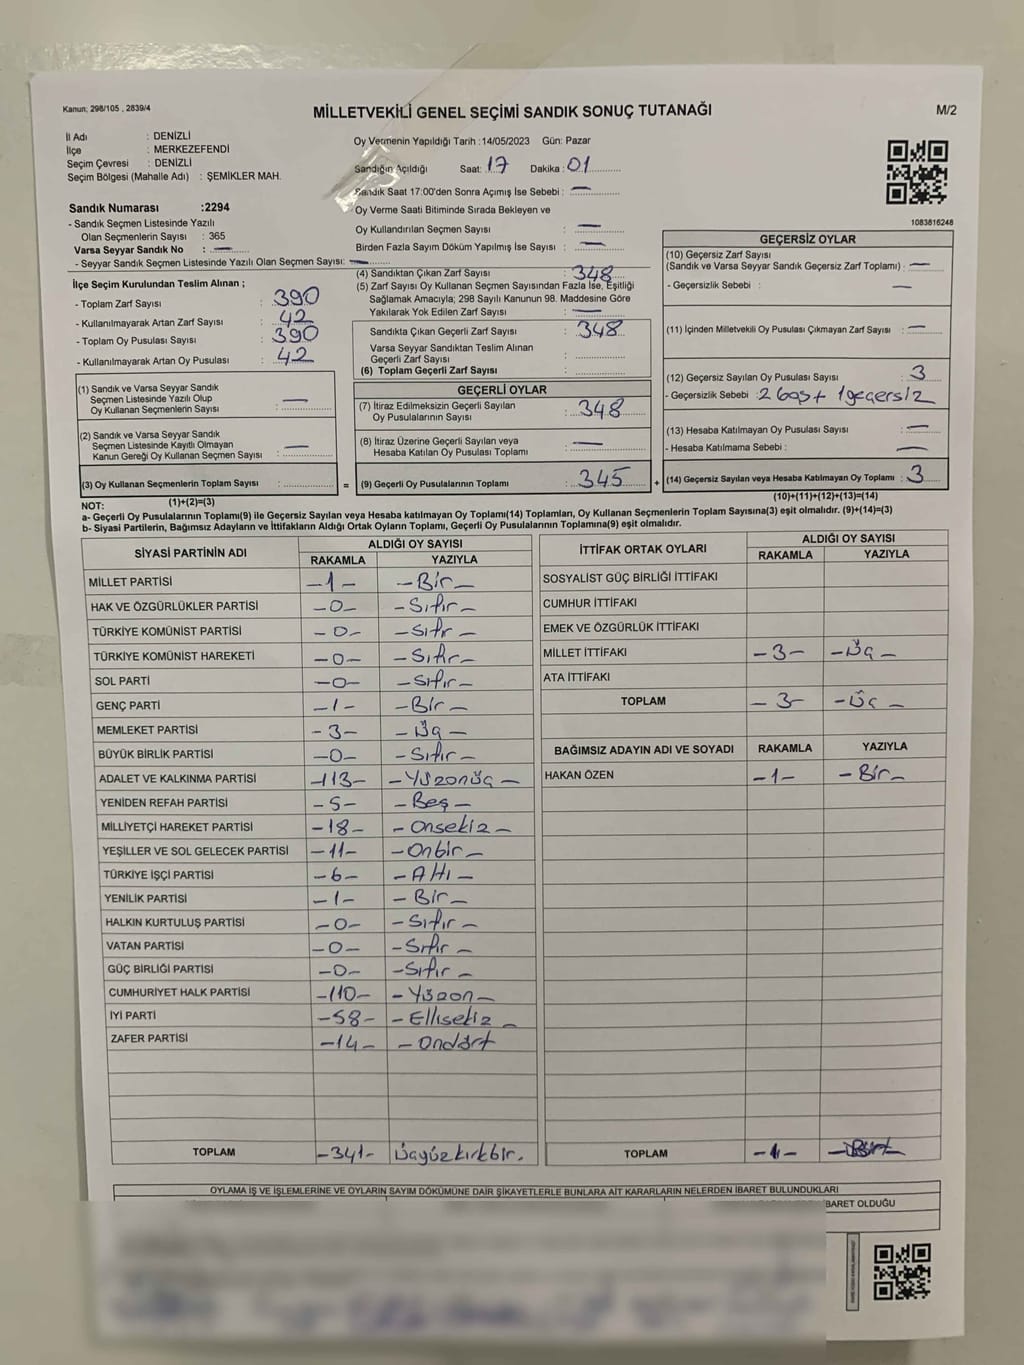 Kanun; 298/105 , 2839/4
MİLLETVEKİLİ GENEL SEÇİMİ SANDIK SONUÇ TUTANAĞI
M/2
İl Adı : DENİZLİ
İlçe : MERKEZEFENDİ
Seçim Çevresi : DENİZLİ
Seçim Bölgesi (Mahalle Adı) : ŞEMİKLER MAH.
Sandık Numarası :2294
- Sandık Seçmen Listesinde Yazılı
Olan Seçmenlerin Sayısı : 365
Varsa Seyyar Sandık No : —
- Seyyar Sandık Seçmen Listesinde Yazılı Olan Seçmen Sayısı: —
İlçe Seçim Kurulundan Teslim Alınan ;
- Toplam Zarf Sayısı : 390
- Kullanılmayarak Artan Zarf Sayısı : 42
- Toplam Oy Pusulası Sayısı : 390
- Kullanılmayarak Artan Oy Pusulası : 42
(1) Sandık ve Varsa Seyyar Sandık
Seçmen Listesinde Yazılı Olup
Oy Kullanan Seçmenlerin Sayısı : —
(2) Sandık ve Varsa Seyyar Sandık
Seçmen Listesinde Kayıtlı Olmayan
Kanun Gereği Oy Kullanan Seçmen Sayısı : —
(3) Oy Kullanan Seçmenlerin Toplam Sayısı :
Oy Vermenin Yapıldığı Tarih :14/05/2023 Gün: Pazar
Sandığın Açıldığı Saat: 17 Dakika : 01
Sandık Saat 17:00'den Sonra Açımış İse Sebebi : —
Oy Verme Saati Bitiminde Sırada Bekleyen ve
Oy Kullandırılan Seçmen Sayısı : —
Birden Fazla Sayım Döküm Yapılmış İse Sayısı : —
(4) Sandıktan Çıkan Zarf Sayısı : 348
(5) Zarf Sayısı Oy Kullanan Seçmen Sayısından Fazla İse, Eşitliği
Sağlamak Amacıyla; 298 Sayılı Kanunun 98. Maddesine Göre
Yakılarak Yok Edilen Zarf Sayısı : —
Sandıkta Çıkan Geçerli Zarf Sayısı : 348
Varsa Seyyar Sandıktan Teslim Alınan
Geçerli Zarf Sayısı :
(6) Toplam Geçerli Zarf Sayısı :
GEÇERLİ OYLAR
(7) İtiraz Edilmeksizin Geçerli Sayılan
Oy Pusulalarının Sayısı : 348
(8) İtiraz Üzerine Geçerli Sayılan veya
Hesaba Katılan Oy Pusulası Toplamı : —
= (9) Geçerli Oy Pusulalarının Toplamı : 345 +
1083816248
GEÇERSİZ OYLAR
(10) Geçersiz Zarf Sayısı
(Sandık ve Varsa Seyyar Sandık Geçersiz Zarf Toplamı) : —
- Geçersizlik Sebebi : —
(11) İçinden Milletvekili Oy Pusulası Çıkmayan Zarf Sayısı : —
(12) Geçersiz Sayılan Oy Pusulası Sayısı : 3
- Geçersizlik Sebebi : 2 boş + 1 geçersiz
(13) Hesaba Katılmayan Oy Pusulası Sayısı : —
- Hesaba Katılmama Sebebi : —
(14) Geçersiz Sayılan veya Hesaba Katılmayan Oy Toplamı : 3
NOT: (1)+(2)=(3)
(10)+(11)+(12)+(13)=(14)
a- Geçerli Oy Pusulalarının Toplamı(9) ile Geçersiz Sayılan veya Hesaba katılmayan Oy Toplamı(14) Toplamları, Oy Kullanan Seçmenlerin Toplam Sayısına(3) eşit olmalıdır. (9)+(14)=(3)
b- Siyasi Partilerin, Bağımsız Adayların ve İttifakların Aldığı Ortak Oyların Toplamı, Geçerli Oy Pusulalarının Toplamına(9) eşit olmalıdır.
SİYASİ PARTİNİN ADI ALDIĞI OY SAYISI
RAKAMLA YAZIYLA
MİLLET PARTİSİ -1- -Bir-
HAK VE ÖZGÜRLÜKLER PARTİSİ -0- -Sıfır-
TÜRKİYE KOMÜNİST PARTİSİ -0- -Sıfır-
TÜRKİYE KOMÜNİST HAREKETİ -0- -Sıfır-
SOL PARTİ -0- -Sıfır-
GENÇ PARTİ -1- -Bir-
MEMLEKET PARTİSİ -3- -Üç-
BÜYÜK BİRLİK PARTİSİ -0- -Sıfır-
ADALET VE KALKINMA PARTİSİ -113- -Yüzonüç-
YENİDEN REFAH PARTİSİ -5- -Beş-
MİLLİYETÇİ HAREKET PARTİSİ -18- -Onsekiz-
YEŞİLLER VE SOL GELECEK PARTİSİ -11- -Onbir-
TÜRKİYE İŞÇİ PARTİSİ -6- -Altı-
YENİLİK PARTİSİ -1- -Bir-
HALKIN KURTULUŞ PARTİSİ -0- -Sıfır-
VATAN PARTİSİ -0- -Sıfır-
GÜÇ BİRLİĞİ PARTİSİ -0- -Sıfır-
CUMHURİYET HALK PARTİSİ -110- -Yüzon-
İYİ PARTİ -58- -Ellisekiz-
ZAFER PARTİSİ -14- -Ondört
TOPLAM -341- Üçyüzkırkbir.
İTTİFAK ORTAK OYLARI ALDIĞI OY SAYISI
RAKAMLA YAZIYLA
SOSYALİST GÜÇ BİRLİĞİ İTTİFAKI
CUMHUR İTTİFAKI
EMEK VE ÖZGÜRLÜK İTTİFAKI
MİLLET İTTİFAKI -3- -Üç-
ATA İTTİFAKI
TOPLAM -3- -Üç-
BAĞIMSIZ ADAYIN ADI VE SOYADI RAKAMLA YAZIYLA
HAKAN ÖZEN -1- -Bir-
TOPLAM -1-
OYLAMA İŞ VE İŞLEMLERİNE VE OYLARIN SAYIM DÖKÜMÜNE DAİR ŞİKAYETLERLE BUNLARA AİT KARARLARIN NELERDEN İBARET BULUNDUKLARI
BARET OLDUĞU